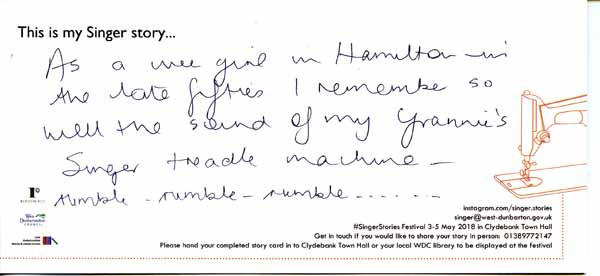 This is my Singer story...
As a wee girl in Hamilton in
the late fifties I remembe so
well the sound of my Grannie's
Singer treadle machine -
rumble - rumble - rumble .......
West
Dunbartonshire
COUNCIL
instagram.com/singer.stories
singer@west-dunbarton.gov.uk
#SingerStories Festival 3-5 May 2018 in Clydebank Town Hall
Get in touch if you would like to share your story in person: 01389772147
Please hand your completed story card in to Clydebank Town Hall or your local WDC library to be displayed at the festival